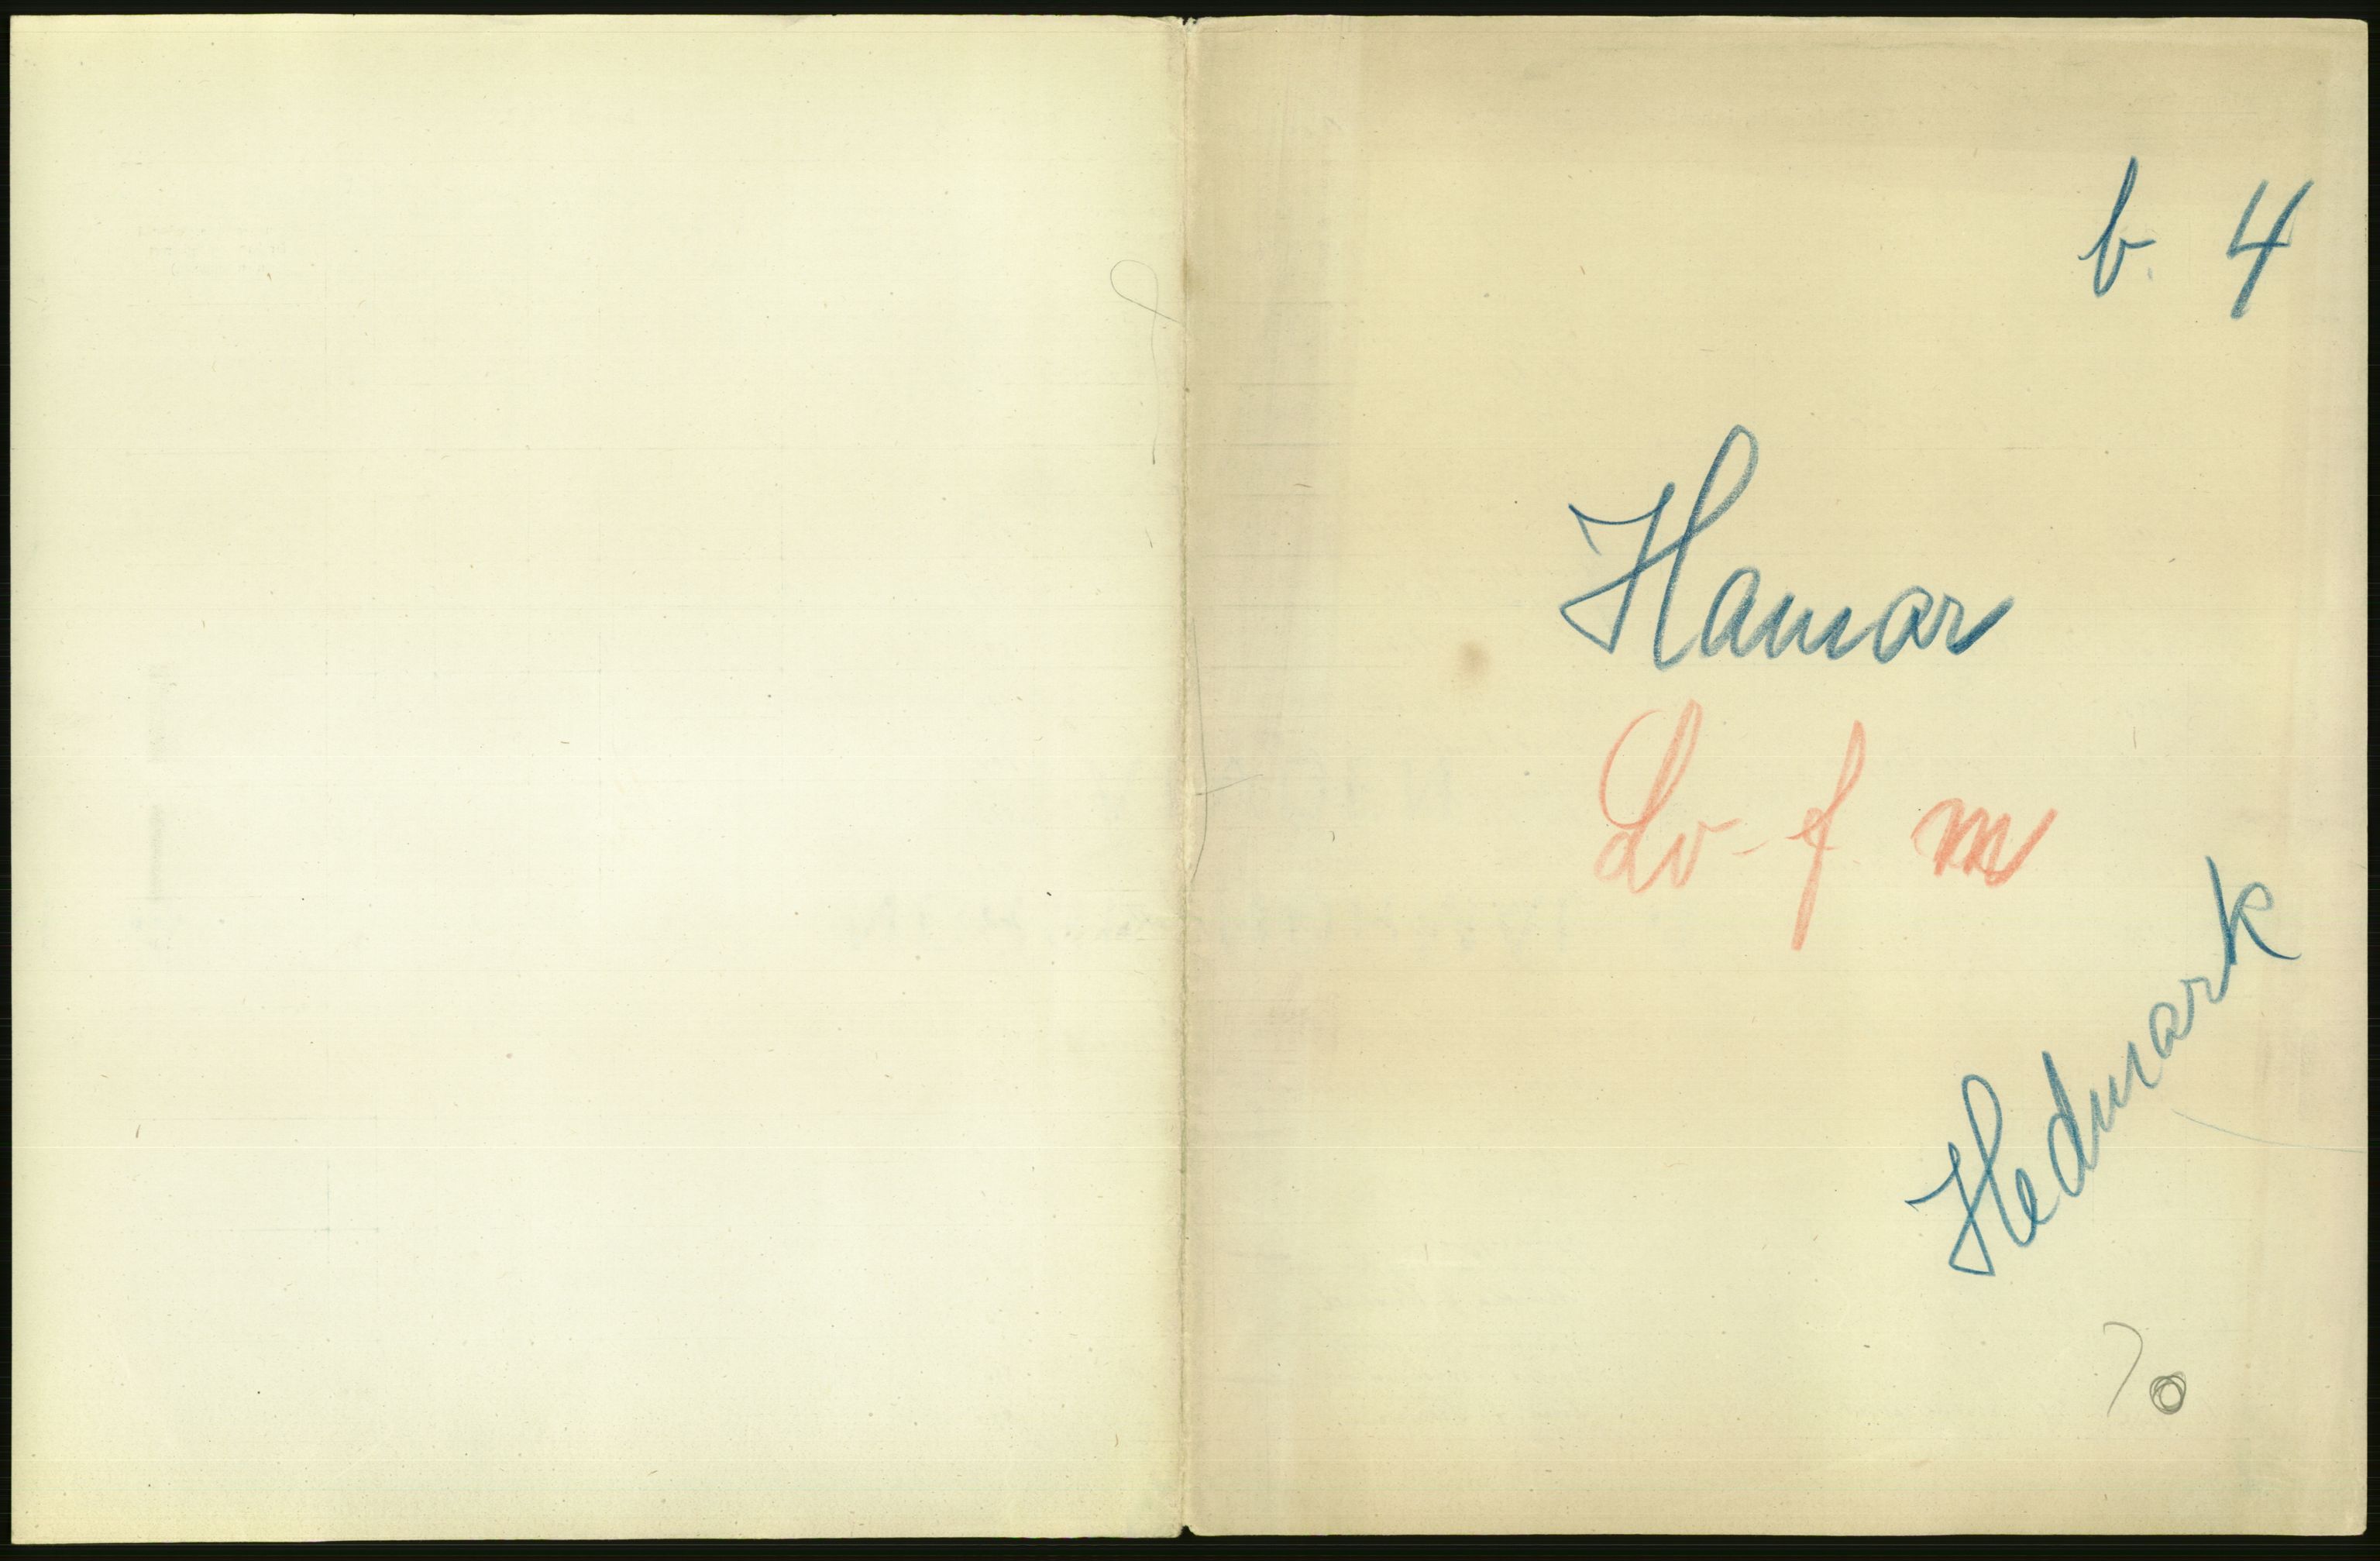 b. 4
Hamar
Lv-f m
Hedmark